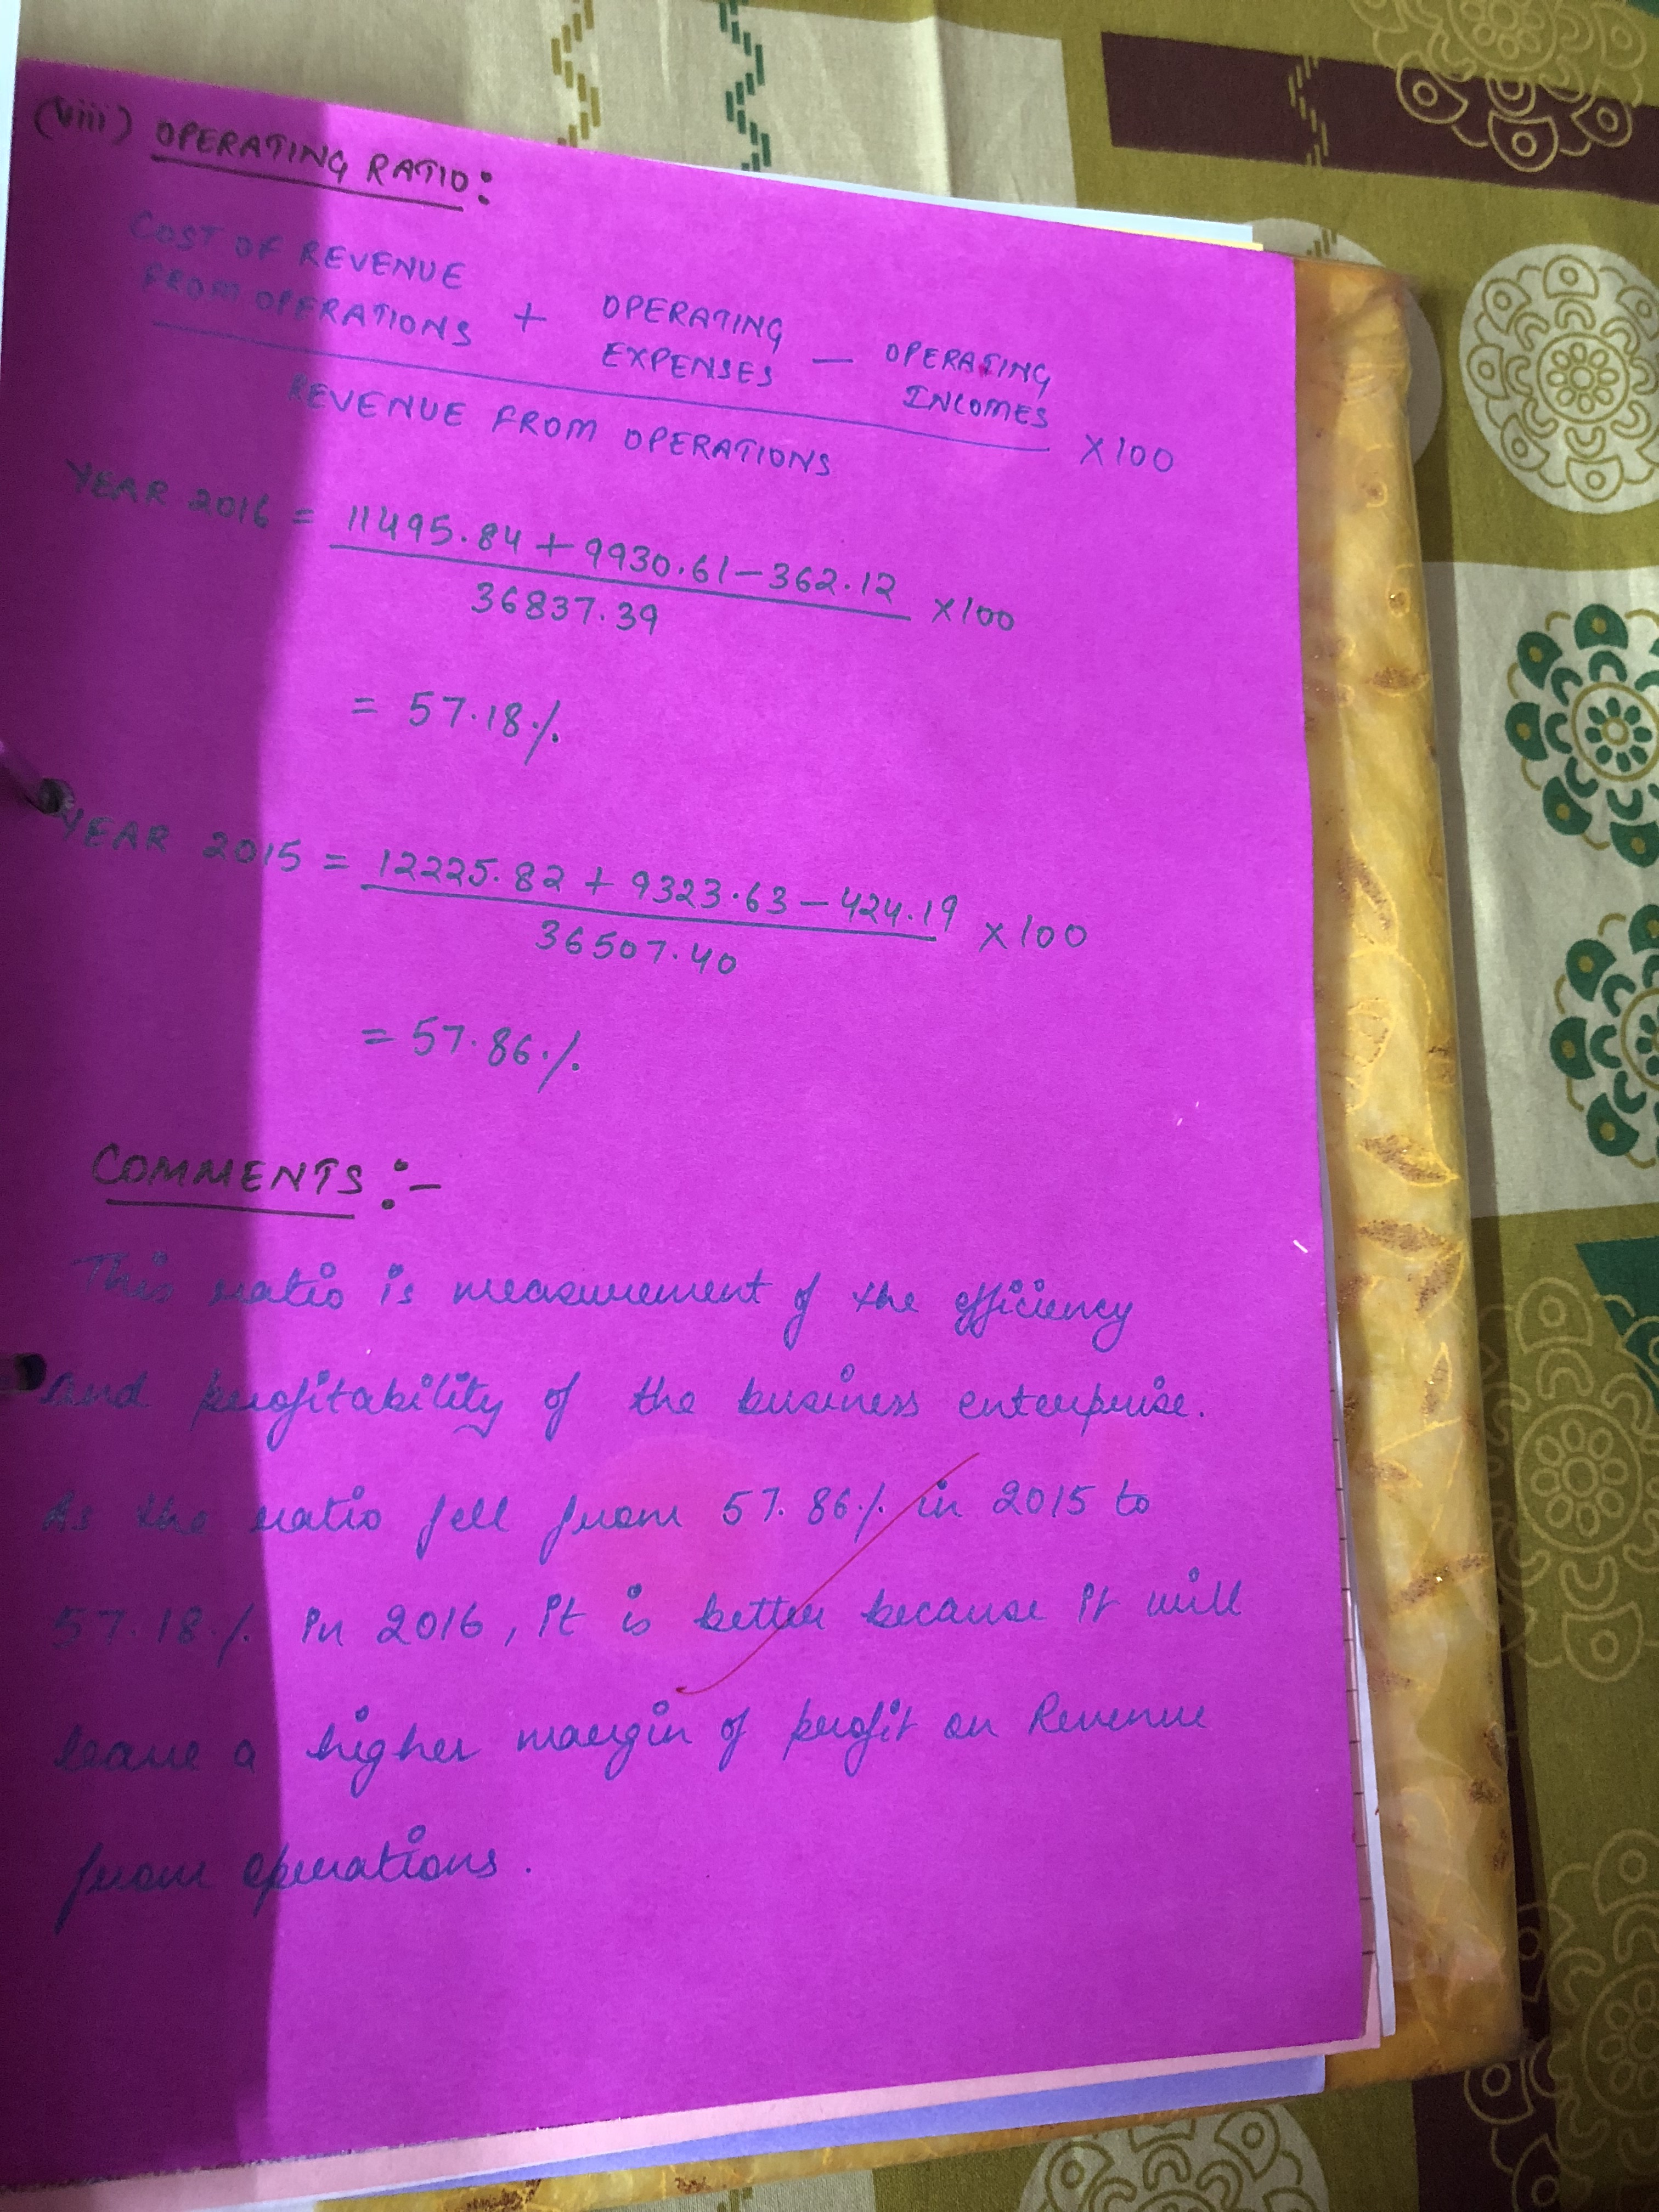 (viii) OPERATING RATIO:
COST OF REVENUE
FROM OPERATIONS + OPERATING EXPENSES - OPERATING INCOMES
REVENUE FROM OPERATIONS X100
YEAR 2016 = 11495.84 + 9930.61 - 362.12
36837.39 X100
= 57.18%
YEAR 2015 = 12225.82 + 9323.63 - 424.19
36507.40 X100
= 57.86%
COMMENTS :-
This ratio is measurement of the efficiency
and profitability of the business enterprise.
As the ratio fell from 57.86% in 2015 to
57.18% in 2016, it is better because it will
leave a higher margin of profit on Revenue
from operations.